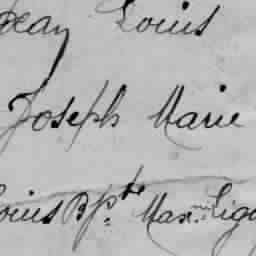 Jean Louis
Joseph Marie
Louis Bpte Max.min Ligo